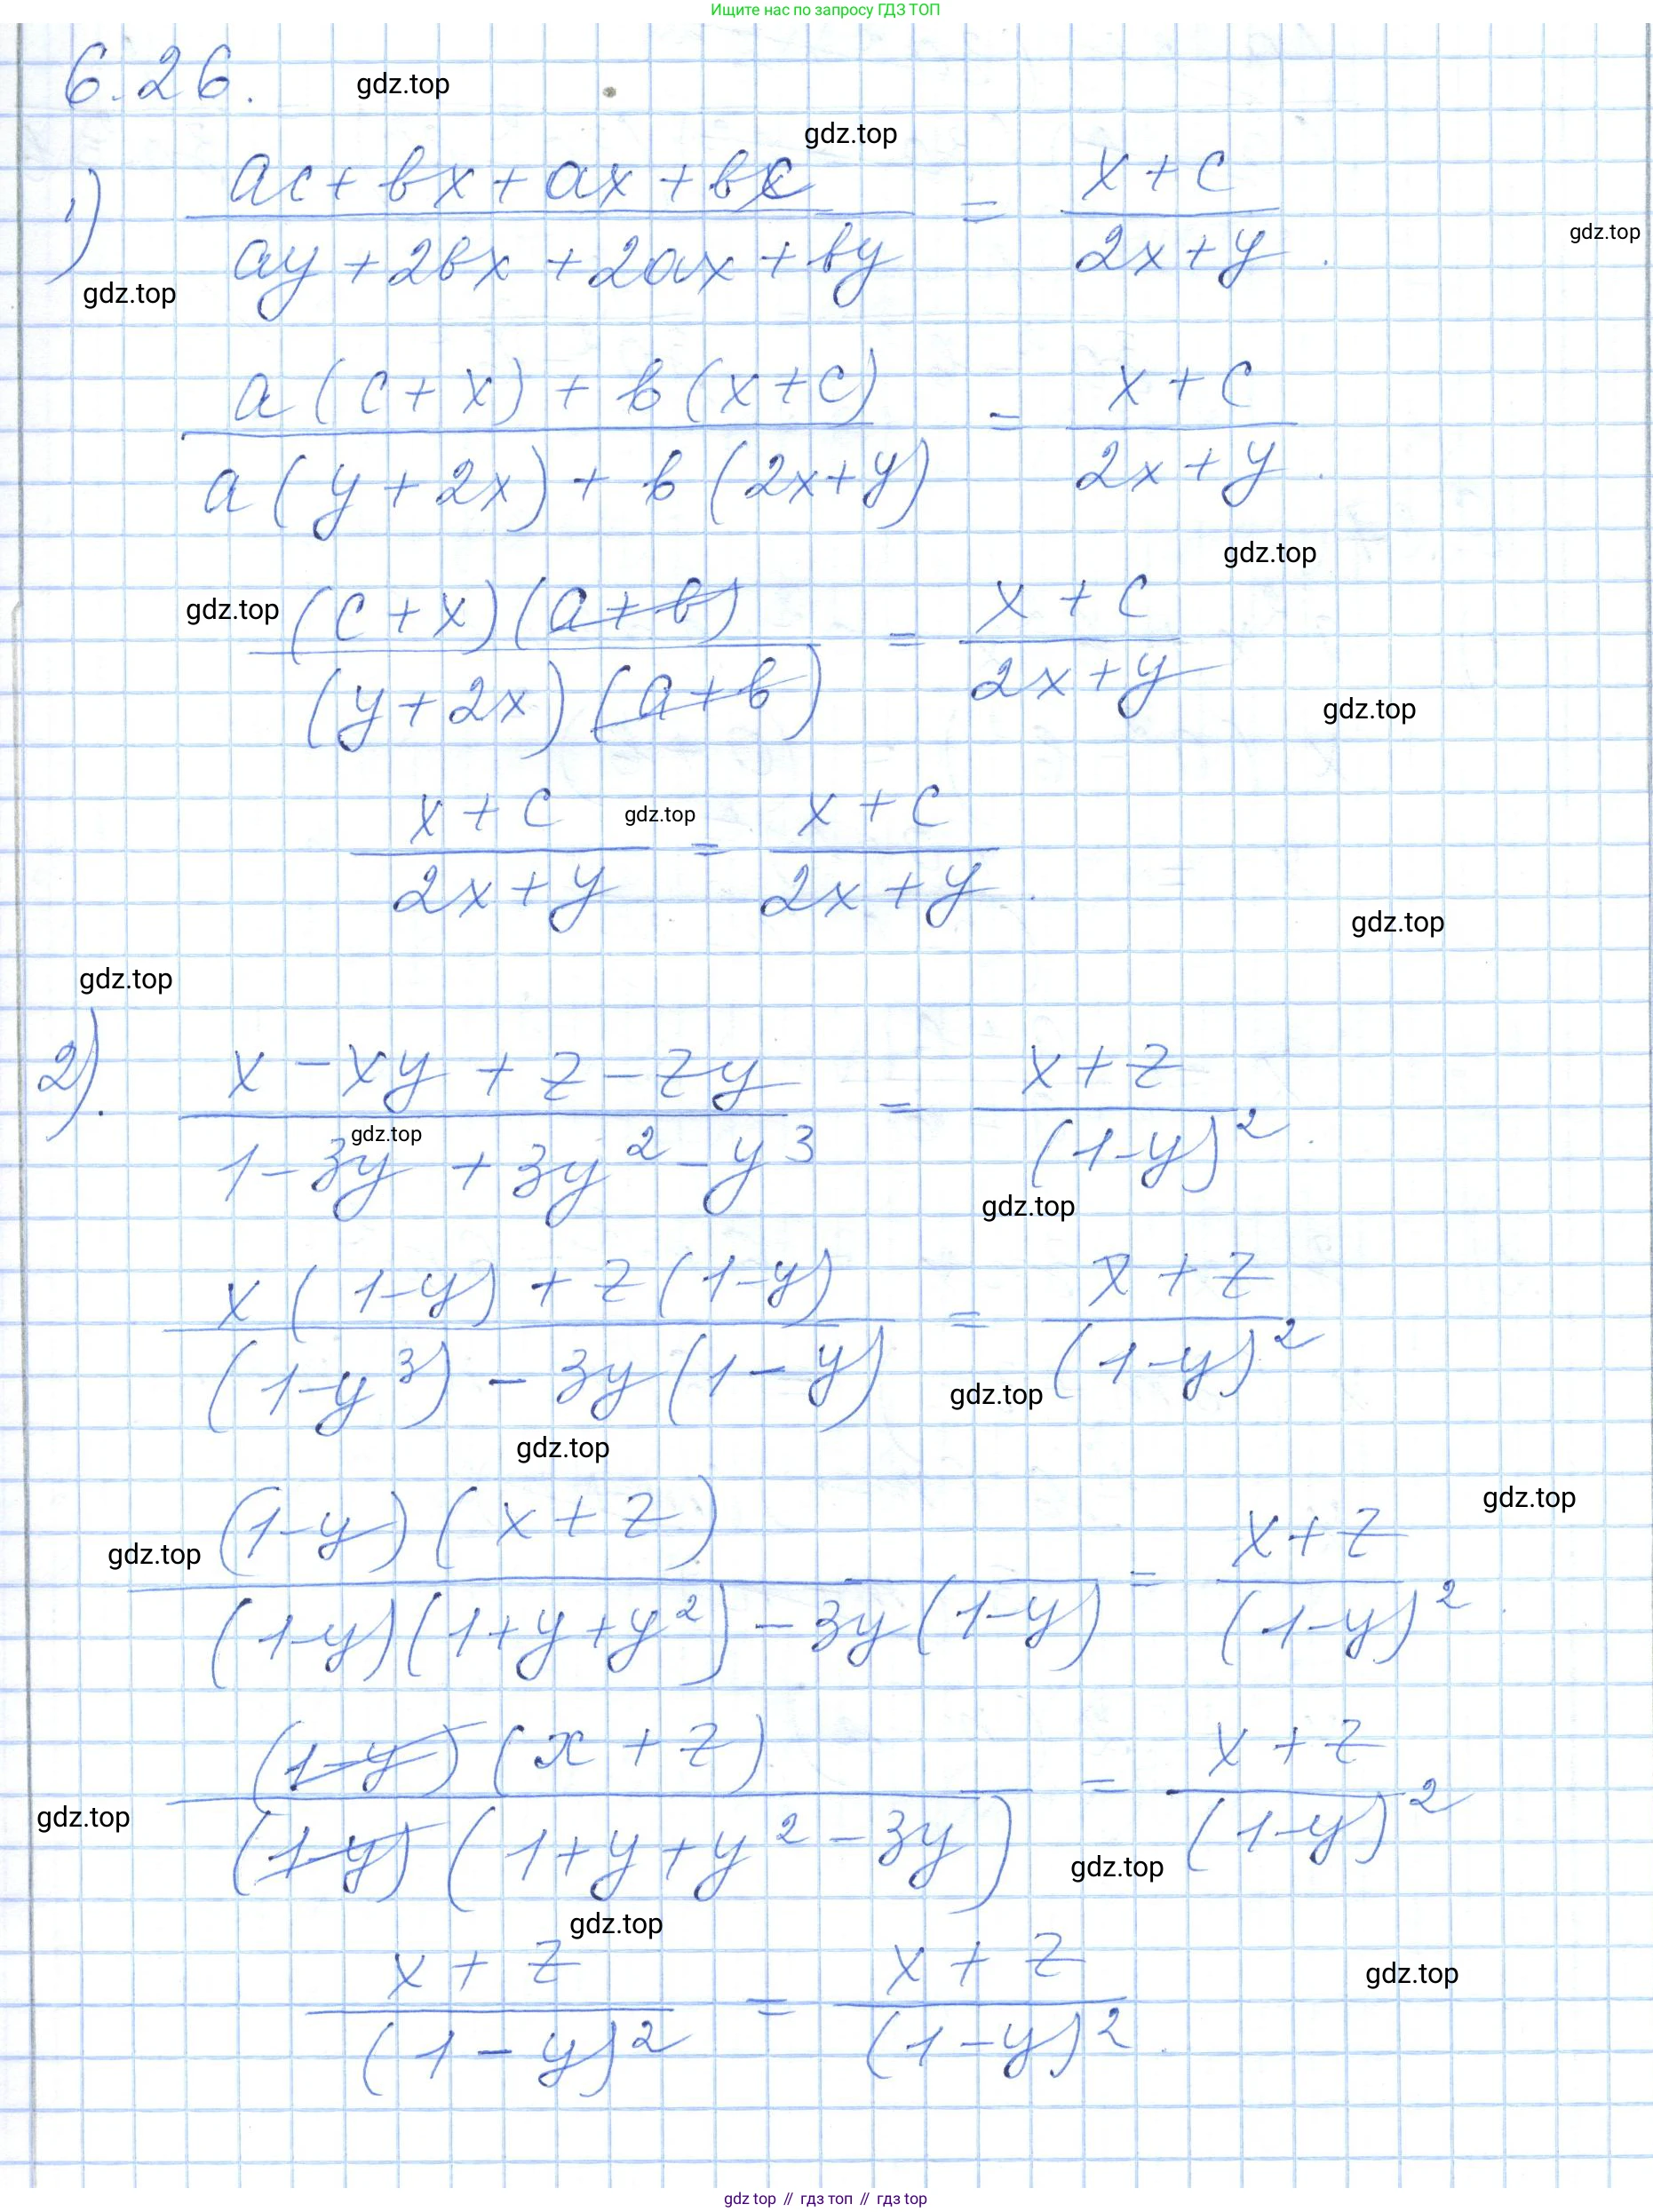 Ищите нас по запросу ГДЗ ТОП
6.26.
gdz.top
gdz.top
1) (ac + bx + ax + bc) / (ay + 2bx + 2ax + by) = (x + c) / (2x + y).
gdz.top
gdz.top
(a(c + x) + b(x + c)) / (a(y + 2x) + b(2x + y)) = (x + c) / (2x + y).
gdz.top
gdz.top
((c + x)(a + b)) / ((y + 2x)(a + b)) = (x + c) / (2x + y)
gdz.top
(x + c) / (2x + y) = (x + c) / (2x + y).
gdz.top
gdz.top
gdz.top
2). (x - xy + z - zy) / (1 - 3y + 3y² - y³) = (x + z) / (1 - y)².
gdz.top
gdz.top
(x(1 - y) + z(1 - y)) / ((1 - y³) - 3y(1 - y)) = (x + z) / (1 - y)²
gdz.top
gdz.top
gdz.top
((1 - y)(x + z)) / ((1 - y)(1 + y + y²) - 3y(1 - y)) = (x + z) / (1 - y)².
gdz.top
((1 - y)(x + z)) / ((1 - y)(1 + y + y² - 3y)) = (x + z) / (1 - y)²
gdz.top
gdz.top
gdz.top
(x + z) / (1 - y)² = (x + z) / (1 - y)².
gdz.top
gdz top // гдз топ // гдз top